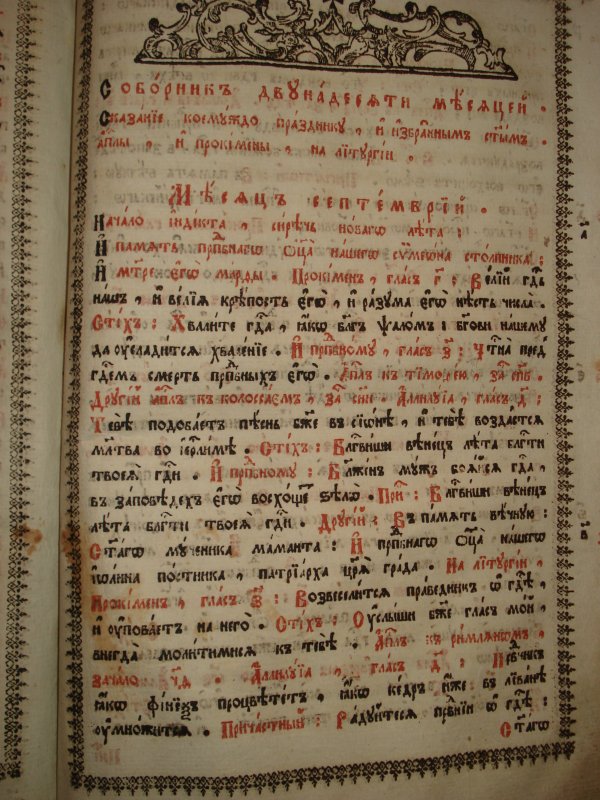 Собо́рникъ двꙋна́десѧти мѣ́сѧцей .
Сказа́нїе коемꙋ́ждо пра́зднику , и҆ и҆збра̑ннымъ ст҃ы̑мъ .
а҆пⷭ҇лы , и҆ прокїмены , на лїтꙋргїи .
Мѣ́сѧцъ септе́мврїй .
Нача́ло і҆ндїкта , си́рѣчь но́вагѡ лѣ́та :
И҆ па́мѧть прпⷣбнагѡ ѻ҆ц҃а̀ на́шегѡ сѷмеѡ́на столпника :
И҆ мт҃ре є҆гѡ̀ марды . Прокі́менъ , гла́съ г҃ : Ве́лїй гдⷭ҇ь
нашъ , и҆ ве́лїѧ крѣ́пость є҆гѡ̀ , и҆ ра́зума є҆гѡ̀ нѣ́сть числа̀ .
Сті́хъ : Хвали́те гдⷭ҇а , ꙗ҆́кѡ бл҃гъ ѱало́мъ : бг҃ови нашемꙋ
да ѹ҆слади́тсѧ хвале́нїе . И҆ прпⷣбномꙋ , гла́съ з҃ : Чⷭ҇тна̀ пред̾
гдⷭ҇емъ сме́рть прпⷣбныхъ є҆гѡ̀ . А҆пⷭ҇лъ къ тїмоѳе́ю , за҃ сп҃в .
Дрꙋгі́й а҆пⷭ҇лъ къ колоссаємъ , за҃ сн҃и . А҆ллилꙋїа , гла́съ д҃ :
Тебѣ̀ подоба́етъ пѣ́снь бж҃е въ сїѡ́нѣ , и҆ тебѣ̀ возда́стсѧ
мл҃тва во і҆ерⷭ҇ли́мѣ . Сті́хъ : Бл҃гви́ши вѣне́цъ лѣ́та бл҃гости
твоеѧ̀ гдⷭ҇и . И҆ прпⷣбномꙋ : Бл҃же́нъ мꙋ́жъ боѧ́йсѧ гдⷭ҇а ,
въ за́повѣдехъ є҆гѡ̀ восхо́щетъ ѕѣлѡ̀ . При́ : Бл҃гви́ши вѣне́цъ
лѣ́та бл҃гости твоеѧ̀ гдⷭ҇и . Дрꙋгі́й : Въ па́мѧть вѣ́чнꙋю :
Ст҃а́гѡ мꙋ́ченика ма́манта : И҆ прпⷣбнагѡ ѻ҆ц҃а̀ на́шегѡ
і҆ѡа́нна по́стника , патрїа́рха цр҃ѧ̀ гра́да . На лїтꙋргїи ,
Прокі́менъ , гла́съ з҃ : Возвесели́тсѧ пра́ведникъ ѡ҆ гдⷭ҇ѣ ,
и҆ ѹ҆пова́етъ на него̀ . Сті́хъ : Оу҆слы́ши бж҃е гла́съ мо́й ,
внегда̀ моли́тимисѧ къ тебѣ̀ . А҆пⷭ҇лъ къ ри́млѧнѡмъ ,
зача́ло ч҃ѳ . А҆ллилꙋїа , гла́съ д҃ : Пра́ведникъ
ꙗ҆́кѡ фі́нїѯъ процвѣте́тъ , ꙗ҆́кѡ ке́дръ и҆́же въ лїва́нѣ
ѹ҆мно́житсѧ . Прича́стный : Ра́дꙋйтесѧ првⷣнїи ѡ҆ гдⷭ҇ѣ :
Ст҃а́гѡ